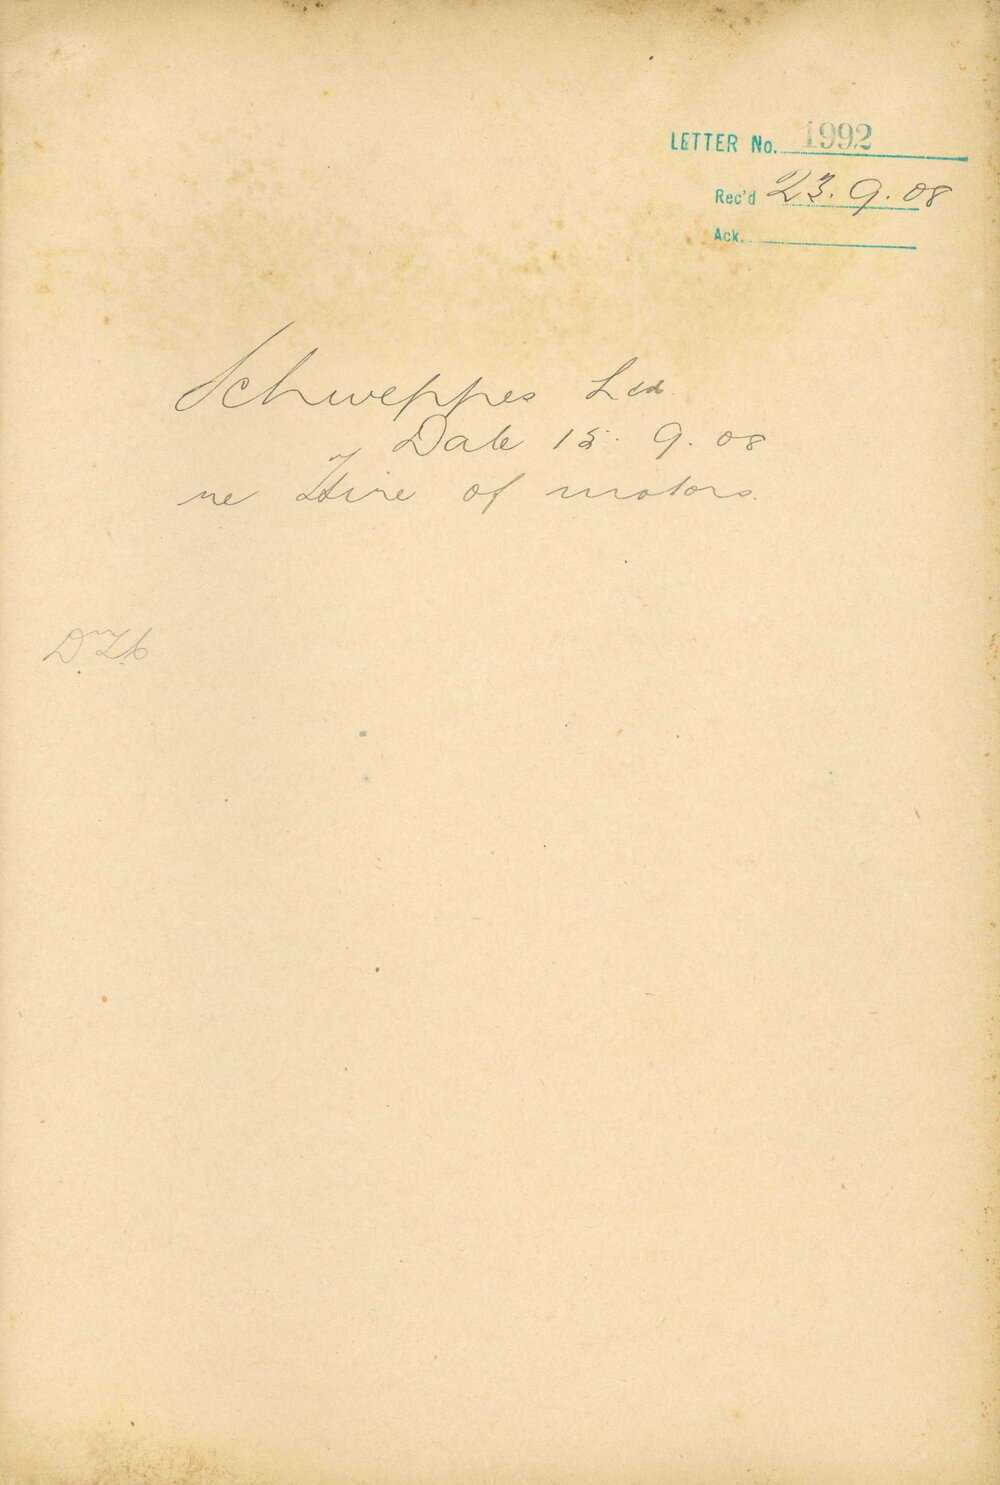 LETTER No. 1992
Rec'd 23. 9. 08
Ack.
Schweppes Ltd
Date 15. 9. 08
re Hire of motors.